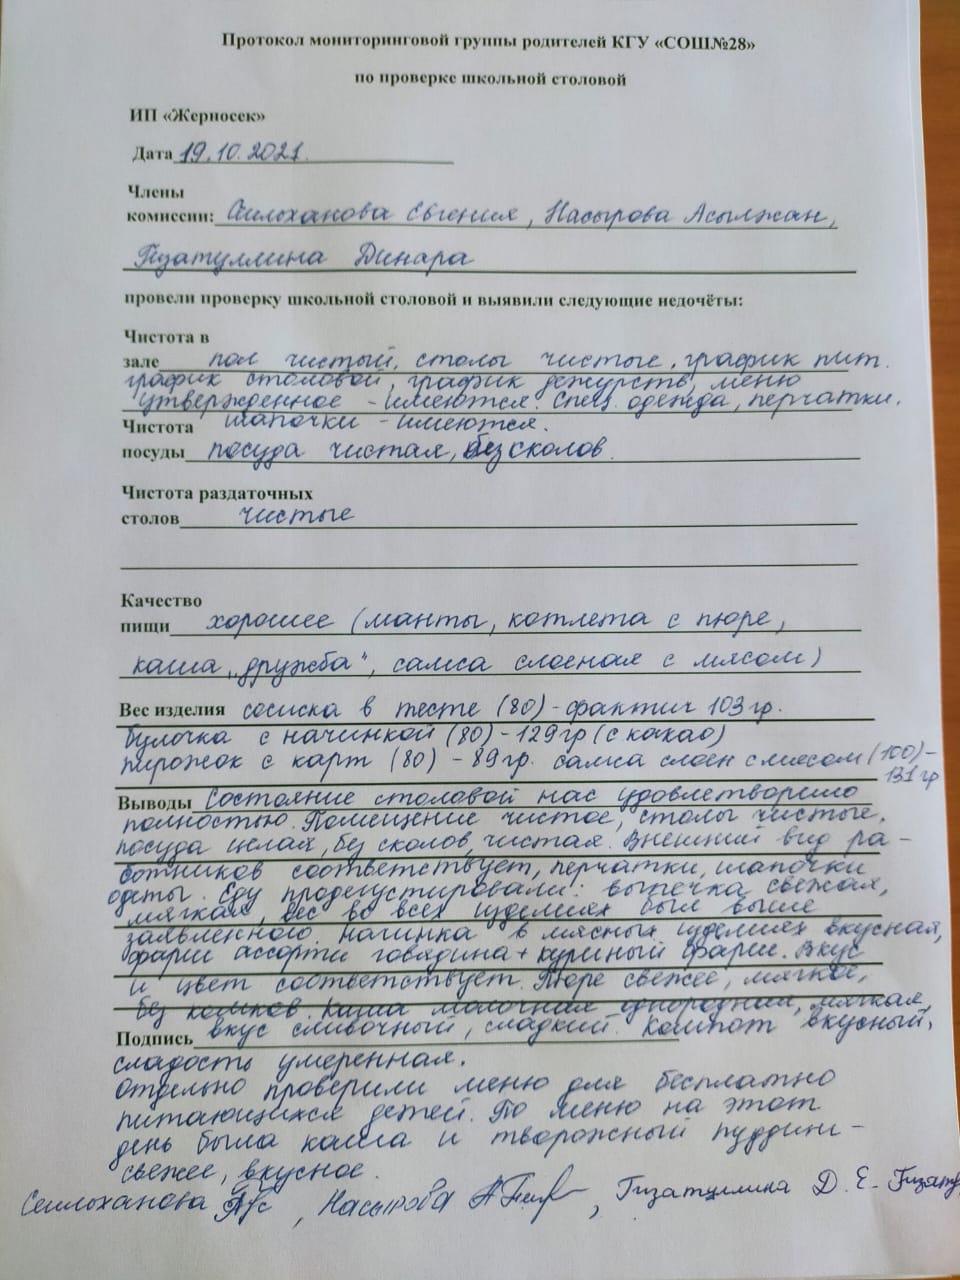 Протокол мониторинговой группы родителей КГУ «СОШ№28»
по проверке школьной столовой
ИП «Жерносек»
Дата 19.10.2021.
Члены
комиссии: Сеильханова Евгения, Насырова Асылжан,
Гизатуллина Динара
провели проверку школьной столовой и выявили следующие недочёты:
Чистота в
зале пол чистый, столы чистые, график пит.
график столовой, график дежурств, меню
утвержденное - имеются. Спец. одежда, перчатки,
Чистота шапочки - имеются.
посуды посуда чистая, без сколов.
Чистота раздаточных
столов чистые
Качество
пищи хорошее (манты, котлета с пюре,
каша „дружба", самса слоеная с мясом)
Вес изделия сосиска в тесте (80) - фактич 103 гр.
булочка с начинкой (80) - 129 гр (с какао)
пирожок с карт (80) - 89 гр. самса слоен с мясом (100) -
131 гр
Выводы Состояние столовой нас удовлетворило
полностью. Помещение чистое, столы чистые,
посуда целая, без сколов, чистая. Внешний вид ра-
ботников соответствует, перчатки, шапочки
одеты. Еду продегустировали: выпечка свежая,
мягкая, вес во всех изделиях был выше
заявленного. начинка в мясных изделиях вкусная,
фарш ассорти говядина + куриный фарш. Вкус
и цвет соответствует. Пюре свежее, мягкое,
без комков. Каша молочная однородная, мягкая,
Подпись вкус сливочный, сладкий. Компот вкусный,
сладость умеренная.
Отдельно проверили меню для бесплатно
питающихся детей. По меню на этот
день была каша и творожный пуддинг -
свежее, вкусное.
Сеильханова, Насырова, Гизатуллина Д. Е.